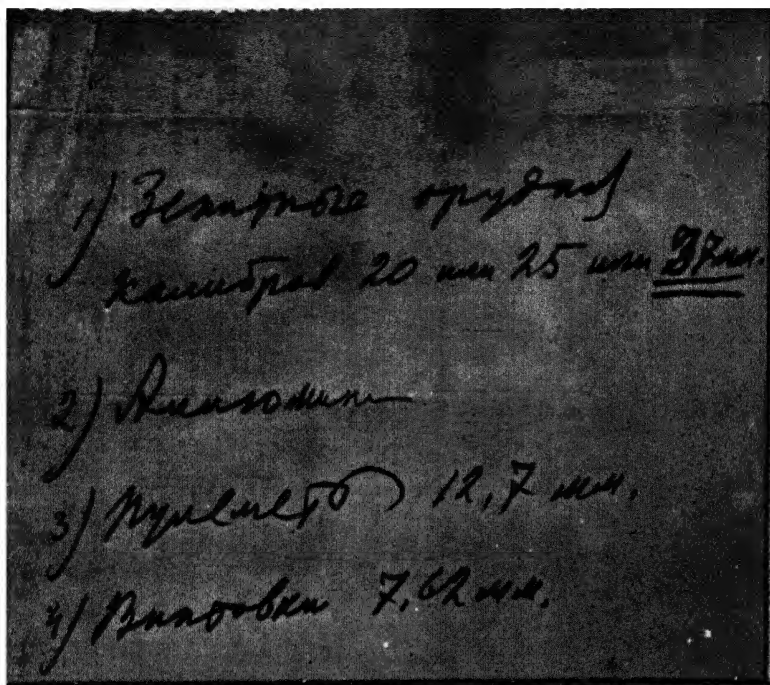 1) Зенитные орудия
калибра 20 или 25 или 37мм.
2) Алюминий
3) Пулеметы 12,7 мм.
4) Винтовки 7,62 мм.